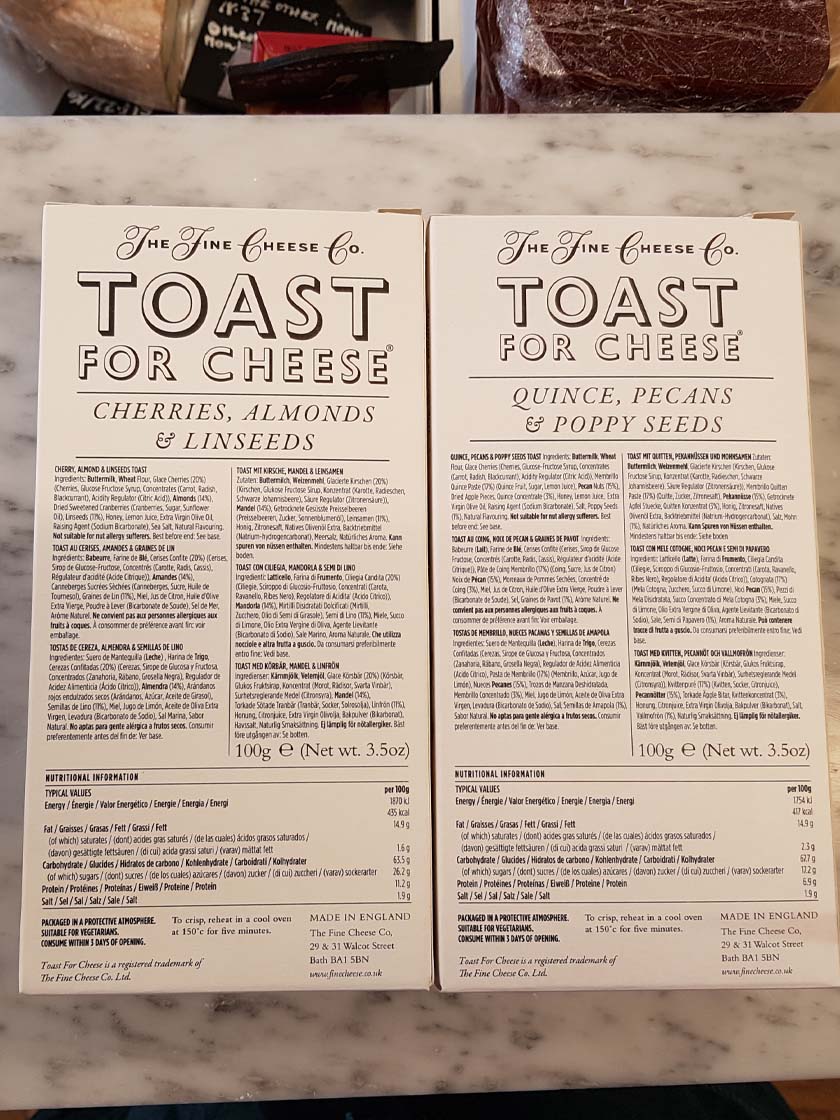 THE FINE CHEESE CO.
TOAST
FOR CHEESE®
CHERRIES, ALMONDS
& LINSEEDS
CHERRY, ALMOND & LINSEEDS TOAST
Ingredients: Buttermilk, Wheat Flour, Glace Cherries (20%)
(Cherries, Glucose Fructose Syrup, Concentrates (Carrot, Radish,
Blackcurrant), Acidity Regulator (Citric Acid)), Almonds (14%),
Dried Sweetened Cranberries (Cranberries, Sugar, Sunflower
Oil), Linseeds (11%), Honey, Lemon Juice, Extra Virgin Olive Oil,
Raising Agent (Sodium Bicarbonate), Sea Salt, Natural Flavouring.
Not suitable for nut allergy sufferers. Best before end: See base.
TOAST AU CERISES, AMANDES & GRAINES DE LIN
Ingrédients: Babeurre, Farine de Blé, Cerises Confite (20%) (Cerises,
Sirop de Glucose-Fructose, Concentrés (Carotte, Radis, Cassis),
Régulateur d'acidité (Acide Citrique)), Amandes (14%),
Canneberges Sucrées Séchées (Canneberges, Sucre, Huile de
Tournesol), Graines de Lin (11%), Miel, Jus de Citron, Huile d'Olive
Extra Vierge, Poudre à Lever (Bicarbonate de Soude), Sel de Mer,
Arôme Naturel. Ne convient pas aux personnes allergiques aux
fruits à coques. À consommer de préférence avant fin: Voir
emballage.
TOSTAS DE CEREZA, ALMENDRA & SEMILLAS DE LINO
Ingredientes: Suero de Mantequilla (Leche), Harina de Trigo,
Cerezas Confitadas (20%) (Cerezas, Sirope de Glucosa y Fructosa,
Concentrados (Zanahoria, Rábano, Grosella Negra), Regulador de
Acidez Alimenticia (Ácido Cítrico)), Almendra (14%), Arándanos
rojos endulzados secos (Arándanos, Azúcar, Aceite de Girasol),
Semillas de Lino (11%), Miel, Jugo de Limón, Aceite de Oliva Extra
Virgen, Levadura (Bicarbonato de Sodio), Sal Marina, Sabor
Natural. No aptas para gente alérgica a frutos secos. Consumir
preferentemente antes del fin de: Ver base.
TOAST MIT KIRSCHE, MANDEL & LEINSAMEN
Zutaten: Buttermilch, Weizenmehl, Glacierte Kirschen (20%)
(Kirschen, Glukose Fructose Sirup, Konzentrat (Karotte, Radieschen,
Schwarze Johannisbeere), Säure Regulator (Zitronensäure)),
Mandel (14%), Getrocknete Gesüsste Preisselbeeren
(Preisselbeeren, Zucker, Sonnenblumenöl), Leinsamen (11%),
Honig, Zitronensaft, Natives Olivenöl Extra, Backtriebmittel
(Natrium-hydrogencarbonat), Meersalz, Natürliches Aroma. Kann
spuren von nüssen enthalten. Mindestens haltbar bis ende: Siehe
boden.
TOAST CON CILIEGIA, MANDORLA & SEMI DI LINO
Ingredienti: Latticello, Farina di Frumento, Ciliegia Candita (20%)
(Ciliegie, Sciroppo di Glucosio-Fruttosio, Concentrati (Carota,
Ravanello, Ribes Nero), Regolatore di Acidita' (Acido Citrico)),
Mandorla (14%), Mirtilli Disidratati Dolcificati (Mirtilli,
Zucchero, Olio di Semi di Girasole), Semi di Lino (11%), Miele, Succo
di Limone, Olio Extra Vergine di Oliva, Agente Lievitante
(Bicarbonato di Sodio), Sale Marino, Aroma Naturale. Che utilizza
nocciole e altra frutta a guscio. Da consumarsi preferibilmente
entro fine: Vedi base.
TOAST MED KÖRBÄR, MANDEL & LINFRÖN
Ingredienser: Kärnmjölk, Vetemjöl, Glace Körsbär (20%) (Körsbär,
Glukos Fruktsirap, Koncentrat (Morot, Rädisor, Svarta Vinbär),
Surhetsreglerande Medel (Citronsyra)), Mandel (14%),
Torkade Sötade Tranbär (Tranbär, Socker, Solrosolja), Linfrön (11%),
Honung, Citronjuice, Extra Virgin Olivolja, Bakpulver (Bikarbonat),
Havssalt, Naturlig Smaksättning. Ej lämplig för nötallergiker. Bäst
före utgången av: Se botten.
100g e (Net wt. 3.5oz)
NUTRITIONAL INFORMATION
TYPICAL VALUES per 100g
Energy / Énergie / Valor Energético / Energie / Energia / Energi 1870 kJ
435 kcal
Fat / Graisses / Grasas / Fett / Grassi / Fett 14.9 g
(of which) saturates / (dont) acides gras saturés / (de las cuales) ácidos grasos saturados /
(davon) gesättigte fettsäuren / (di cui) acida grassi saturi / (varav) mättat fett 1.6 g
Carbohydrate / Glucides / Hidratos de carbono / Kohlenhydrate / Carboidrati / Kolhydrater 63.5 g
(of which) sugars / (dont) sucres / (de los cuales) azúcares / (davon) zucker / (di cui) zuccheri / (varav) sockerarter 26.2 g
Protein / Protéines / Proteínas / Eiweiß / Proteine / Protein 11.2 g
Salt / Sel / Sal / Salz / Sale / Salt 1.9 g
PACKAGED IN A PROTECTIVE ATMOSPHERE.
SUITABLE FOR VEGETARIANS.
CONSUME WITHIN 3 DAYS OF OPENING.
To crisp, reheat in a cool oven
at 150°c for five minutes.
MADE IN ENGLAND
The Fine Cheese Co,
29 & 31 Walcot Street
Bath BA1 5BN
www.finecheese.co.uk
Toast For Cheese is a registered trademark of
The Fine Cheese Co. Ltd.
THE FINE CHEESE CO.
TOAST
FOR CHEESE®
QUINCE, PECANS
& POPPY SEEDS
QUINCE, PECANS & POPPY SEEDS TOAST Ingredients: Buttermilk, Wheat
Flour, Glace Cherries (Cherries, Glucose-Fructose Syrup, Concentrates
(Carrot, Radish, Blackcurrant), Acidity Regulator (Citric Acid)), Membrillo
Quince Paste (17%) (Quince Fruit, Sugar, Lemon Juice), Pecan Nuts (15%),
Dried Apple Pieces, Quince Concentrate (3%), Honey, Lemon Juice, Extra
Virgin Olive Oil, Raising Agent (Sodium Bicarbonate), Salt, Poppy Seeds
(1%), Natural Flavouring. Not suitable for nut allergy sufferers. Best
before end: See base.
TOAST AU COING, NOIX DE PECAN & GRAINES DE PAVOT Ingrédients:
Babeurre (Lait), Farine de Blé, Cerises Confite (Cerises, Sirop de Glucose
Fructose, Concentrés (Carotte, Radis, Cassis), Régulateur d'acidité (Acide
Citrique)), Pâte de Coing Membrillo (17%) (Coing, Sucre, Jus de Citron),
Noix de Pécan (15%), Morceaux de Pommes Sechées, Concentré de
Coing (3%), Miel, Jus de Citron, Huile d'Olive Extra Vierge, Poudre à Lever
(Bicarbonate de Soude), Sel, Graines de Pavot (1%), Arôme Naturel. Ne
convient pas aux personnes allergiques aux fruits à coques. À
consommer de préférence avant fin: Voir emballage.
TOSTAS DE MEMBRILLO, NUECES PACANAS Y SEMILLAS DE AMAPOLA
Ingredientes: Suero de Mantequilla (Leche), Harina de Trigo, Cerezas
Confitadas (Cerezas, Sirope de Glucosa y Fructosa, Concentrados
(Zanahoria, Rábano, Grosella Negra), Regulador de Acidez Alimenticia
(Ácido Cítrico), Pasta de Membrillo (17%) (Membrillo, Azúcar, Jugo de
Limón), Nueces Pecanes (15%), Trozos de Manzana Deshidratada,
Membrillo Concentrado (3%), Miel, Jugo de Limón, Aceite de Oliva Extra
Virgen, Levadura (Bicarbonato de Sodio), Sal, Semillas de Amapola (1%),
Sabor Natural. No aptas para gente alérgica a frutos secos. Consumir
preferentemente antes del fin de: Ver base.
TOAST MIT QUITTEN, PEKANNÜSSEN UND MOHNSAMEN Zutaten:
Buttermilch, Weizenmehl, Glacierte Kirschen (Kirschen, Glukose
Fructose Sirup, Konzentrat (Karotte, Radieschen, Schwarze
Johannisbeere), Säure Regulator (Zitronensäure)), Membrillo Quitten
Paste (17%) (Quitte, Zucker, Zitronensaft), Pekannüsse (15%), Getrocknete
Apfel Stuecke, Quitten Konzentrat (3%), Honig, Zitronensaft, Natives
Olivenöl Extra, Backtriebmittel (Natrium-Hydrogencarbonat), Salz, Mohn
(1%), Natürliches Aroma. Kann Spuren von Nüssen enthalten.
Mindestens haltbar bis ende: Siehe boden
TOAST CON MELE COTOGNE, NOCI PECAN E SEMI DI PAPAVERO
Ingredienti: Latticello (Latte), Farina di Frumento, Ciliegia Candita
(Ciliegie, Sciroppo di Glucosio-Fruttosio, Concentrati (Carota, Ravanello,
Ribes Nero), Regolatore di Acidita' (Acido Citrico)), Cotognata (17%)
(Mela Cotogna, Zucchero, Succo di Limone), Noci Pecan (15%), Pezzi di
Mela Disidratata, Succo Concentrato di Mela Cotogna (3%), Miele, Succo
di Limone, Olio Extra Vergine di Oliva, Agente Lievitante (Bicarbonato di
Sodio), Sale, Semi di Papavero (1%), Aroma Naturale. Può contenere
tracce di frutta a guscio. Da consumarsi preferibilmente entro fine: Vedi
base.
TOAST MED KVITTEN, PECANNÖT OCH VALLMOFRÖN Ingredienser:
Kärnmjölk, Vetemjöl, Glace Körsbär (Körsbär, Glukos Fruktsirap,
Koncentrat (Morot, Rädisor, Svarta Vinbär), Surhetsreglerande Medel
(Citronsyra)), Kvittenpuré (17%) (Kvitten, Socker, Citronjuice),
Pecannötter (15%), Torkade Äpple Bitar, Kvittenkoncentrat (3%),
Honung, Citronjuice, Extra Virgin Olivolja, Bakpulver (Bikarbonat), Salt,
Vallmofrön (1%), Naturlig Smaksättning. Ej lämplig för nötallergiker.
Bäst före utgången av: Se botten.
100g e (Net wt. 3.5oz)
NUTRITIONAL INFORMATION
TYPICAL VALUES per 100g
Energy / Énergie / Valor Energético / Energie / Energia / Energi 1754 kJ
417 kcal
Fat / Graisses / Grasas / Fett / Grassi / Fett 14.9 g
(of which) saturates / (dont) acides gras saturés / (de las cuales) ácidos grasos saturados /
(davon) gesättigte fettsäuren / (di cui) acida grassi saturi / (varav) mättat fett 2.3 g
Carbohydrate / Glucides / Hidratos de carbono / Kohlenhydrate / Carboidrati / Kolhydrater 62.7 g
(of which) sugars / (dont) sucres / (de los cuales) azúcares / (davon) zucker / (di cui) zuccheri / (varav) sockerarter 17.2 g
Protein / Protéines / Proteínas / Eiweiß / Proteine / Protein 6.9 g
Salt / Sel / Sal / Salz / Sale / Salt 1.9 g
PACKAGED IN A PROTECTIVE ATMOSPHERE.
SUITABLE FOR VEGETARIANS.
CONSUME WITHIN 3 DAYS OF OPENING.
To crisp, reheat in a cool oven
at 150°c for five minutes.
MADE IN ENGLAND
The Fine Cheese Co,
29 & 31 Walcot Street
Bath BA1 5BN
www.finecheese.co.uk
Toast For Cheese is a registered trademark of
The Fine Cheese Co. Ltd.